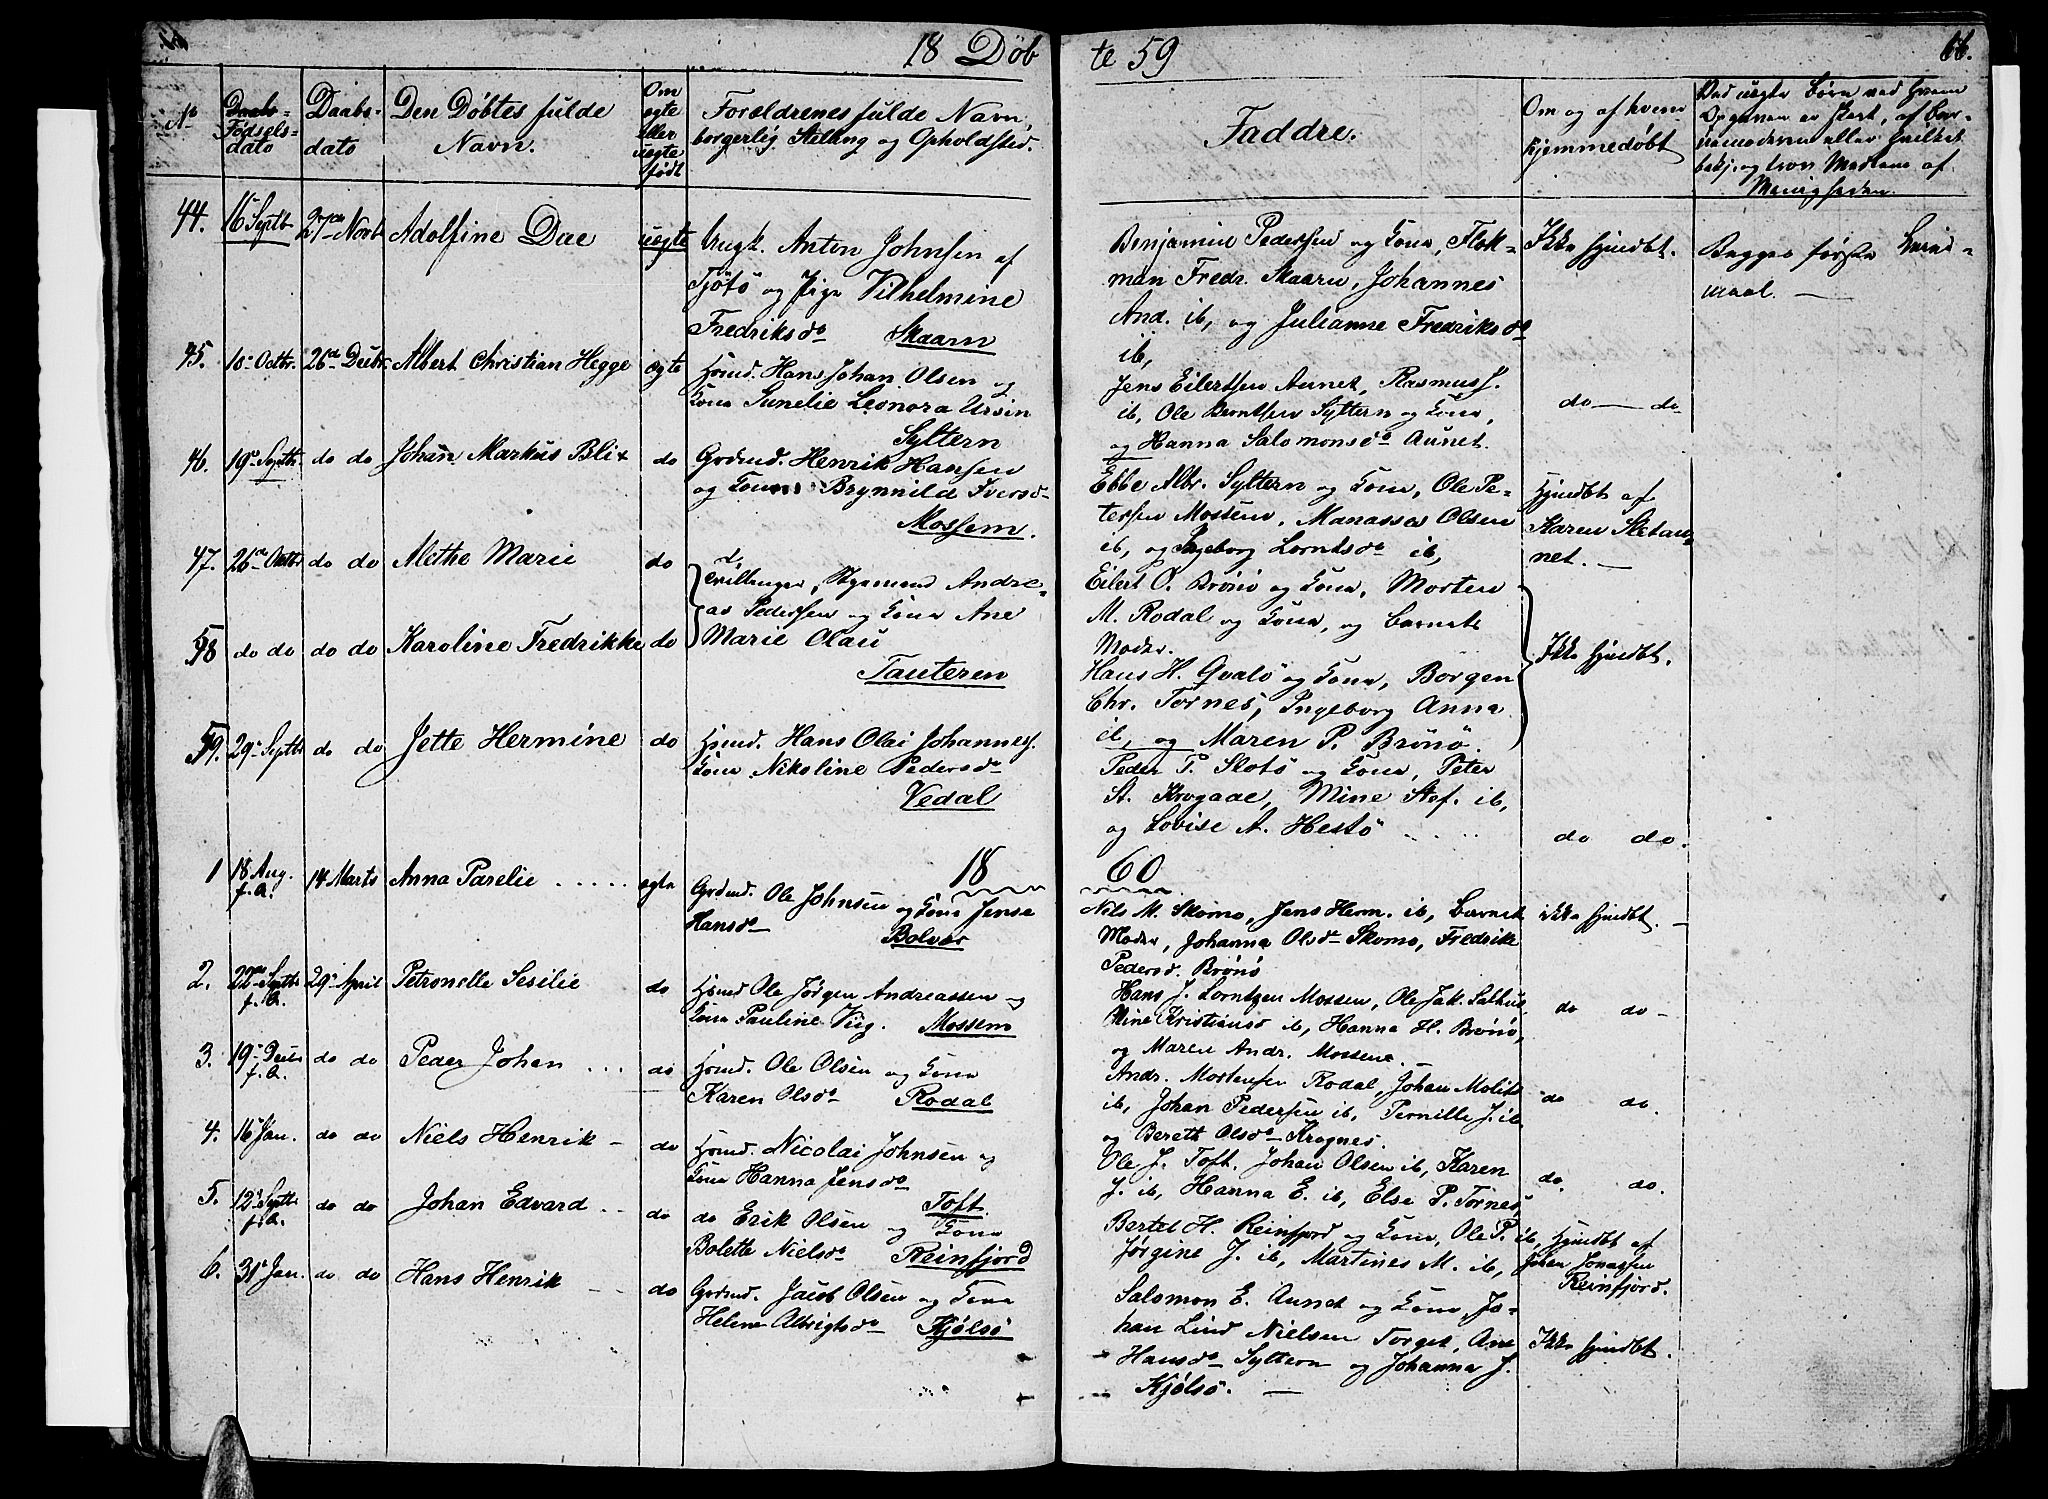 18 Døb
te 59
66.
No
Daabs-
Fødsels-
dato
Daabs-
dato
Den Døbtes fulde
Navn.
Om
ægte
eller
uægte
født
Forældrenes fulde Navn,
borgerlig Stilling og Opholdsted.
Faddre.
Om og af hvem
hjemmedøbt
Ved uægte Børn ved hvem
Opgaven er skeet, af Bar-
nemoderen eller hvilket
bekj. og hvor Mødrene af
Menigheden.
44. 16 Septbr 27de Novbr Adolfine Dae uægte Ungk. Anton Johnsen af
Tjøtø og Pige Vilhelmine
Fredriksdr Skaarn
Benjamin Pedersen og Kona, Flok-
man Fredr. Skaarn, Johannes
And. ib, og Julianne Fredriksdr
ib,
Ikke hjmdbt.
Begges første Leier-
maal. —
45. 10. Octbr. 26de Decbr. Albert Christian Hegge ægte Hsmd. Hans Johan Olsen og
Kona Sunelie Leonora Ursin
Syltern
Jens Eilertsen Aunet, Rasmus S.
ib, Ole Berntsen Syltern og Kona,
og Hanna Salomonsdr Aunet.
do — do
46. 19. Septbr do do Johan Markus Blix do Grdmd. Henrik Hansen
og Kona Brynnilde Iversd.
Mossem.
Ebbe Albr. Syltern og Kona, Ole Pe-
tersen Mossem, Manasses Olsen
ib, og Ingeborg Lorntsdr ib,
Hjmdbt af
Karen Sletau-
net. —
47. 26de Octbr do do Methe Marie do
Tvillinger, Andre-
as Pedersen og Kona Ane
Marie Olau
Tauteren
Eilert O. Brønø og Kona, Morten
M. Rodal og Kona, og Barnets
Moder.
48 do do do do Karoline Fredrikke do
Hans H. Qvalø og Kona, Borgen
Chr. Tornes, Ingeborg Anna
ib, og Maren P. Brønø.
Ikke hjmdbt.
49. 29. Septbr do do Jette Hermine do Hsmd. Hans Olai Johannes.
Kona Nikoline Pedersdr
Vedal
Peder P. Slotø og Kona, Peter
St. Krogaae, Mine Stef. ib,
og Lovise A. Hestø
do do.
18
60
1 18 Aug. f. A. 14 Marts Anna Parelie ..... ægte Grdmd. Ole Johnsen og Kona Jensa
Hansdr Bolvær
Nils M. Skomo, Jens Herm. ib, Barnets
Moder, Johanna Olsdr Skomo, Fredrike
Pedersd. Brønø
ikke hjmdbt. —
2. 22de Septbr f. A. 29. April Petronelle Sesilie do Hsmd Ole Jørgen Andreassen og
Kona Pauline Viig. Mossem
Hans J. Lorntzen Mossem, Ole Jak. Salhus
Mine Kristiansd ib, Hanna H. Brønø,
og Maren Andr. Mossem. —
do do —
3. 19. Decbr f. A. do do Peder Johan ... do Hsmd. Ole Olsen og Kona
Karen Olsdr Rodal
Andr. Mortensen Rodal, Johan Molits
ib, Johan Pedersen ib, Pernille J. ib
og Bereth Olsdr Krognes.
do do.
4. 16 Jan. do do Niels Henrik – do Hsmd. Nicolai Johnsen og
Kona Hanna Jensdr
Toft.
Ole J. Toft. Johan Olsen ib, Karen
J. ib, Hanna E. ib, Else P. Tornes,
do. do.
5. 12. Septbr f. A. do do Johan Edvard .. do do Erik Olsen og Kona
Bolette Nielsdr Reinfjord
Bertel H. Reinfjord og Kona, Ole P. ib,
Jørgine J. ib, Martines M. ib,
Hjmdbt af
Johan Jonassen
Reinfjord.
6. 31. Jan. do do Hans Henrik – – do Grdmd. Jacob Olsen og Kona
Helene Albrigtsdr Kjølsø
Salomon E. Aunet og Kona, Jo-
han Lind Nielsen Torget, Ane
Hansdr Syltern og Johanna J.
Kjølsø. —
Ikke hjmdbt.